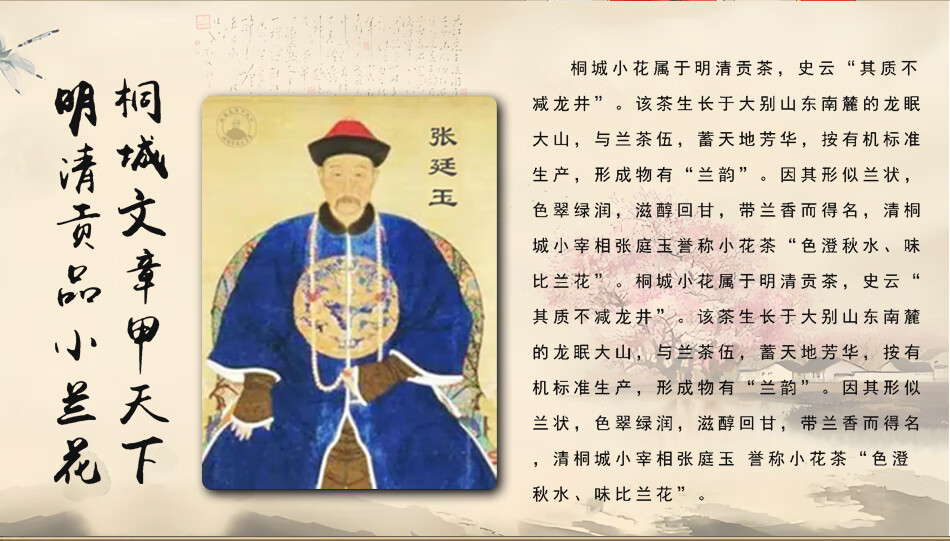 桐城文章甲天下
明清贡品小兰花
张廷玉
桐城小花属于明清贡茶，史云“其质不
减龙井”。该茶生长于大别山东南麓的龙眠
大山，与兰茶伍，蓄天地芳华，按有机标准
生产，形成物有“兰韵”。因其形似兰状，
色翠绿润，滋醇回甘，带兰香而得名，清桐
城小宰相张庭玉誉称小花茶“色澄秋水、味
比兰花”。桐城小花属于明清贡茶，史云“
其质不减龙井”。该茶生长于大别山东南麓
的龙眠大山，与兰茶伍，蓄天地芳华，按有
机标准生产，形成物有“兰韵”。因其形似
兰状，色翠绿润，滋醇回甘，带兰香而得名
，清桐城小宰相张庭玉 誉称小花茶“色澄
秋水、味比兰花”。